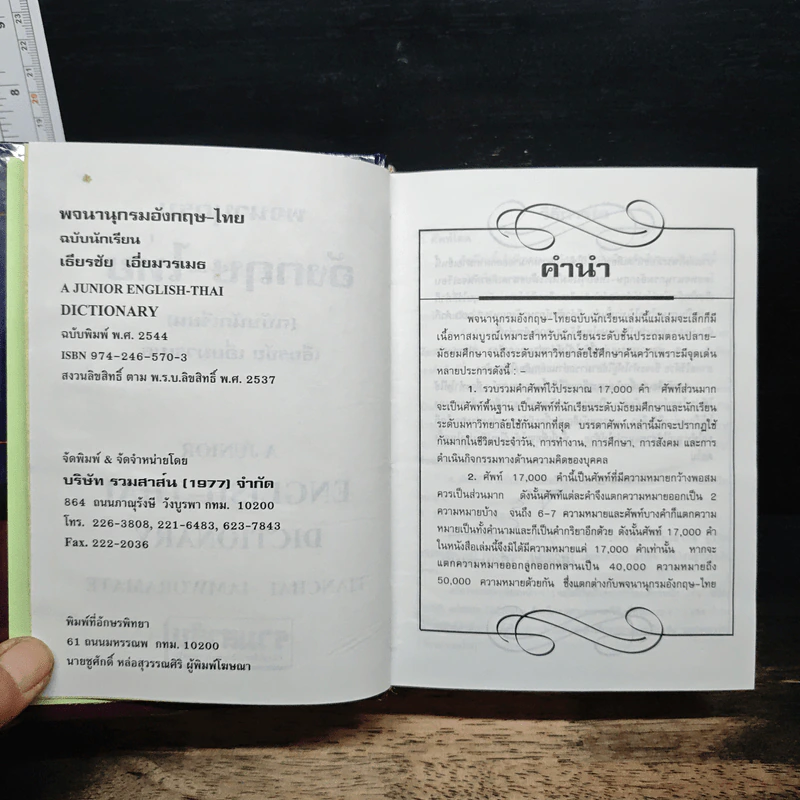 พจนานุกรมอังกฤษ-ไทย
ฉบับนักเรียน
เธียรชัย เอี่ยมวรเมธ
A JUNIOR ENGLISH-THAI
DICTIONARY
ฉบับพิมพ์ พ.ศ. 2544
ISBN 974-246-570-3
สงวนลิขสิทธิ์ ตาม พ.ร.บ.ลิขสิทธิ์ พ.ศ. 2537
จัดพิมพ์ & จัดจำหน่ายโดย
บริษัท รวมสาส์น (1977) จำกัด
864 ถนนภาณุรังษี วังบูรพา กทม. 10200
โทร. 226-3808, 221-6483, 623-7843
Fax. 222-2036
พิมพ์ที่อักษรพิทยา
61 ถนนมหรรณพ กทม. 10200
นายชูศักดิ์ หล่อสุวรรณศิริ ผู้พิมพ์โฆษณา
คำนำ
พจนานุกรมอังกฤษ-ไทยฉบับนักเรียนเล่มนี้แม้เล่มจะเล็กก็มี
เนื้อหาสมบูรณ์เหมาะสำหรับนักเรียนระดับชั้นประถมตอนปลาย-
มัธยมศึกษาจนถึงระดับมหาวิทยาลัยใช้ศึกษาค้นคว้าเพราะมีจุดเด่น
หลายประการดังนี้ : -
1. รวบรวมคำศัพท์ไว้ประมาณ 17,000 คำ ศัพท์ส่วนมาก
จะเป็นศัพท์พื้นฐาน เป็นศัพท์ที่นักเรียนระดับมัธยมศึกษาและนักเรียน
ระดับมหาวิทยาลัยใช้กันมากที่สุด บรรดาศัพท์เหล่านี้มักจะปรากฏใช้
กันมากในชีวิตประจำวัน, การทำงาน, การศึกษา, การสังคม และการ
ดำเนินกิจกรรมทางด้านความคิดของบุคคล
2. ศัพท์ 17,000 คำนี้เป็นศัพท์ที่มีความหมายกว้างพอสม
ควรเป็นส่วนมาก ดังนั้นศัพท์แต่ละคำจึงแตกความหมายออกเป็น 2
ความหมายบ้าง จนถึง 6-7 ความหมายและศัพท์บางคำก็แตกความ
หมายเป็นทั้งคำนามและก็เป็นคำกริยาอีกด้วย ดังนั้นศัพท์ 17,000 คำ
ในหนังสือเล่มนี้จึงมิได้มีความหมายแค่ 17,000 คำเท่านั้น หากจะ
แตกความหมายออกลูกออกหลานเป็น 40,000 ความหมายถึง
50,000 ความหมายด้วยกัน ซึ่งแตกต่างกับพจนานุกรมอังกฤษ-ไทย